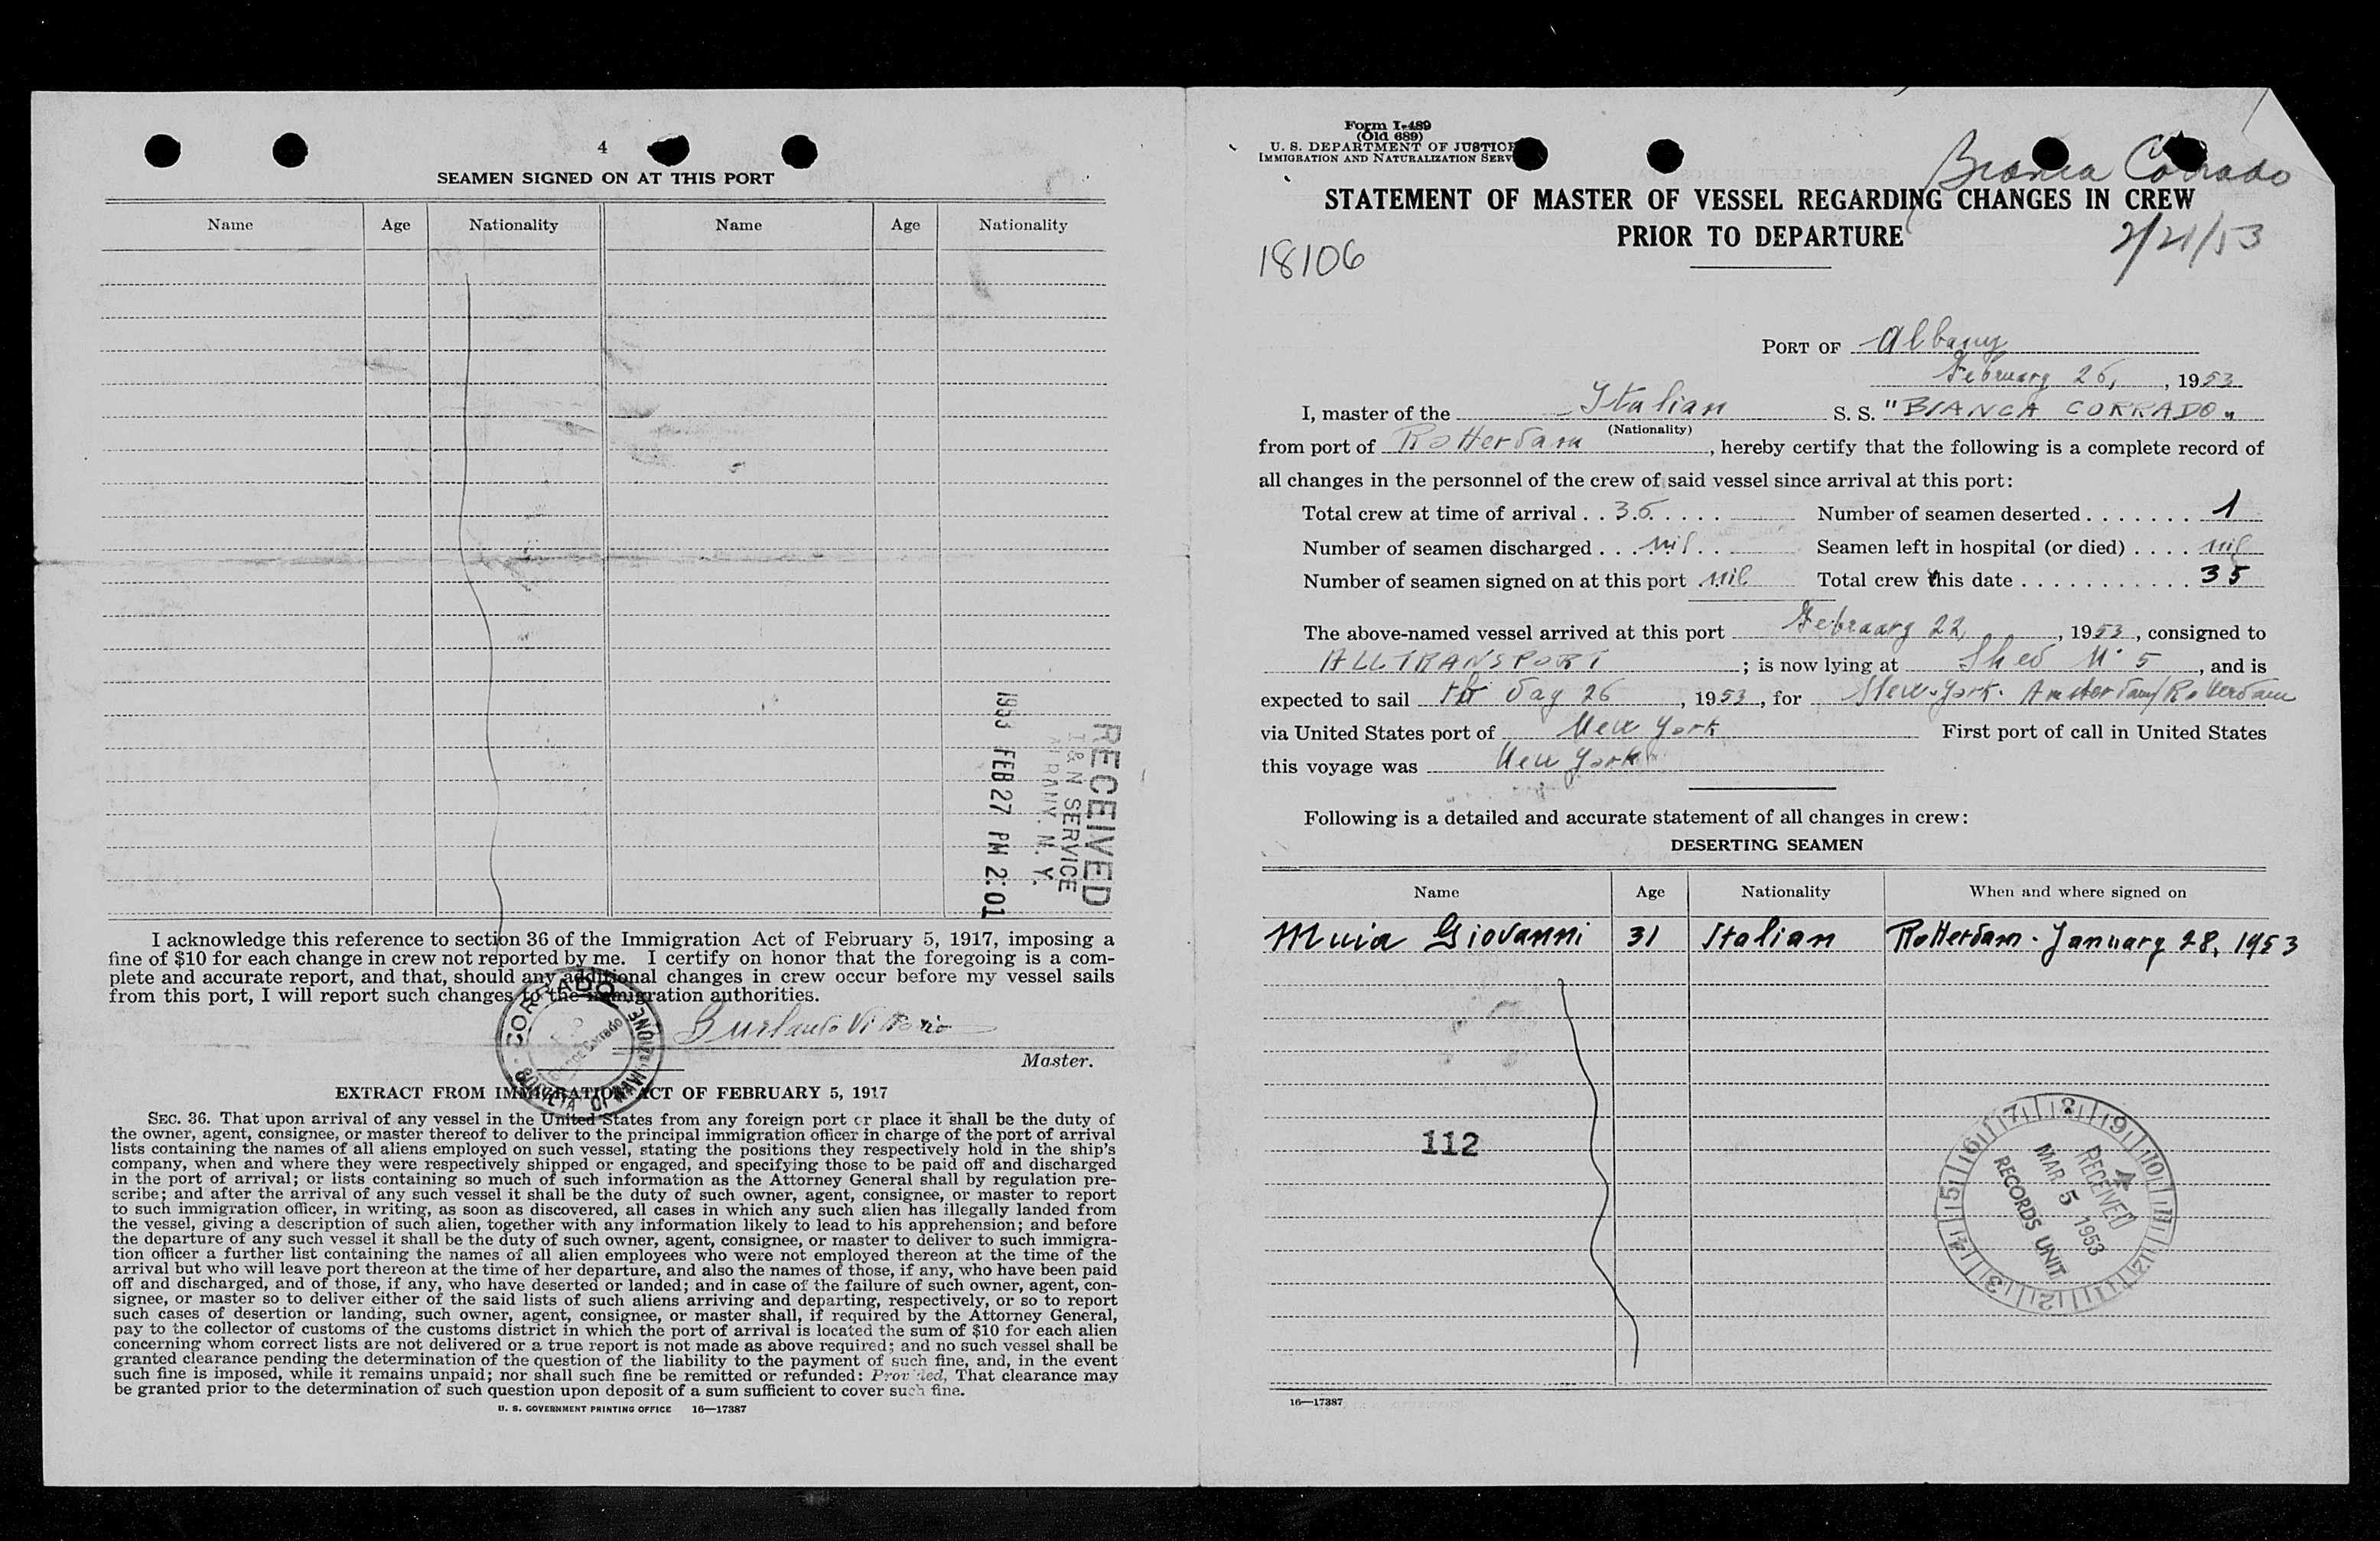 4
SEAMEN SIGNED ON AT THIS PORT
Name Age Nationality Name Age Nationality
RECEIVED
I & N SERVICE
ALBANY, N. Y.
1953 FEB 27 PM 2:01
I acknowledge this reference to section 36 of the Immigration Act of February 5, 1917, imposing a
fine of $10 for each change in crew not reported by me. I certify on honor that the foregoing is a com-
plete and accurate report, and that, should any additional changes in crew occur before my vessel sails
from this port, I will report such changes to the immigration authorities.
CORRADO
SOCIETA' DI NAVIGAZIONE
Master.
EXTRACT FROM IMMIGRATION ACT OF FEBRUARY 5, 1917
SEC. 36. That upon arrival of any vessel in the United States from any foreign port or place it shall be the duty of
the owner, agent, consignee, or master thereof to deliver to the principal immigration officer in charge of the port of arrival
lists containing the names of all aliens employed on such vessel, stating the positions they respectively hold in the ship's
company, when and where they were respectively shipped or engaged, and specifying those to be paid off and discharged
in the port of arrival; or lists containing so much of such information as the Attorney General shall by regulation pre-
scribe; and after the arrival of any such vessel it shall be the duty of such owner, agent, consignee, or master to report
to such immigration officer, in writing, as soon as discovered, all cases in which any such alien has illegally landed from
the vessel, giving a description of such alien, together with any information likely to lead to his apprehension; and before
the departure of any such vessel it shall be the duty of such owner, agent, consignee, or master to deliver to such immigra-
tion officer a further list containing the names of all alien employees who were not employed thereon at the time of the
arrival but who will leave port thereon at the time of her departure, and also the names of those, if any, who have been paid
off and discharged, and of those, if any, who have deserted or landed; and in case of the failure of such owner, agent, con-
signee, or master so to deliver either of the said lists of such aliens arriving and departing, respectively, or so to report
such cases of desertion or landing, such owner, agent, consignee, or master shall, if required by the Attorney General,
pay to the collector of customs of the customs district in which the port of arrival is located the sum of $10 for each alien
concerning whom correct lists are not delivered or a true report is not made as above required; and no such vessel shall be
granted clearance pending the determination of the question of the liability to the payment of such fine, and, in the event
such fine is imposed, while it remains unpaid; nor shall such fine be remitted or refunded: Provided, That clearance may
be granted prior to the determination of such question upon deposit of a sum sufficient to cover such fine.
U. S. GOVERNMENT PRINTING OFFICE 16—17387
Form I-489
(Old 689)
U. S. DEPARTMENT OF JUSTICE
IMMIGRATION AND NATURALIZATION SERV
Bianca Corrado
STATEMENT OF MASTER OF VESSEL REGARDING CHANGES IN CREW
PRIOR TO DEPARTURE
2/21/53
18106
PORT OF Albany
February 26, , 1953
I, master of the Italian S. S. "BIANCA CORRADO"
(Nationality)
from port of Rotterdam , hereby certify that the following is a complete record of
all changes in the personnel of the crew of said vessel since arrival at this port:
Total crew at time of arrival . . 36 . . . . Number of seamen deserted . . . . . . . 1
Number of seamen discharged . . . nil . . Seamen left in hospital (or died) . . . . nil
Number of seamen signed on at this port nil Total crew this date . . . . . . . . . . . 35
The above-named vessel arrived at this port February 22, , 1953 , consigned to
ALLTRANSPORT ; is now lying at Shed N° 5 , and is
expected to sail day 26 , 1953 , for New-York. Amsterdam/Rotterdam
via United States port of New York First port of call in United States
this voyage was New York
Following is a detailed and accurate statement of all changes in crew:
DESERTING SEAMEN
Name Age Nationality When and where signed on
Muia Giovanni 31 Italian Rotterdam. January 28, 1953
112
RECEIVED
MAR 5 1953
RECORDS UNIT
16—17387